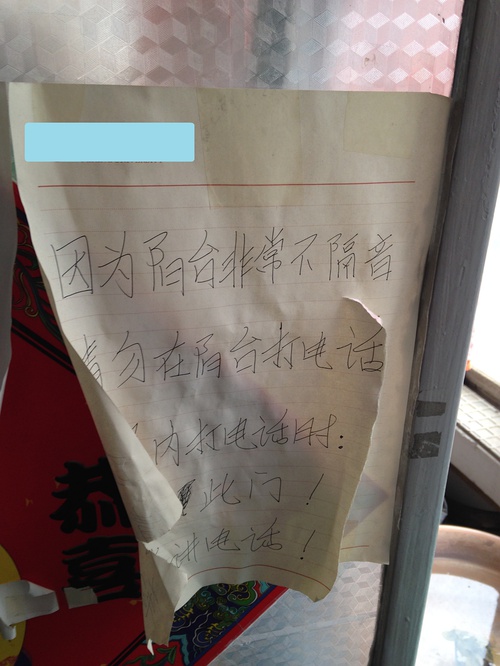 因为阳台非常不隔音
请勿在阳台打电话
内打电话时:
此门!
讲电话!
恭
喜